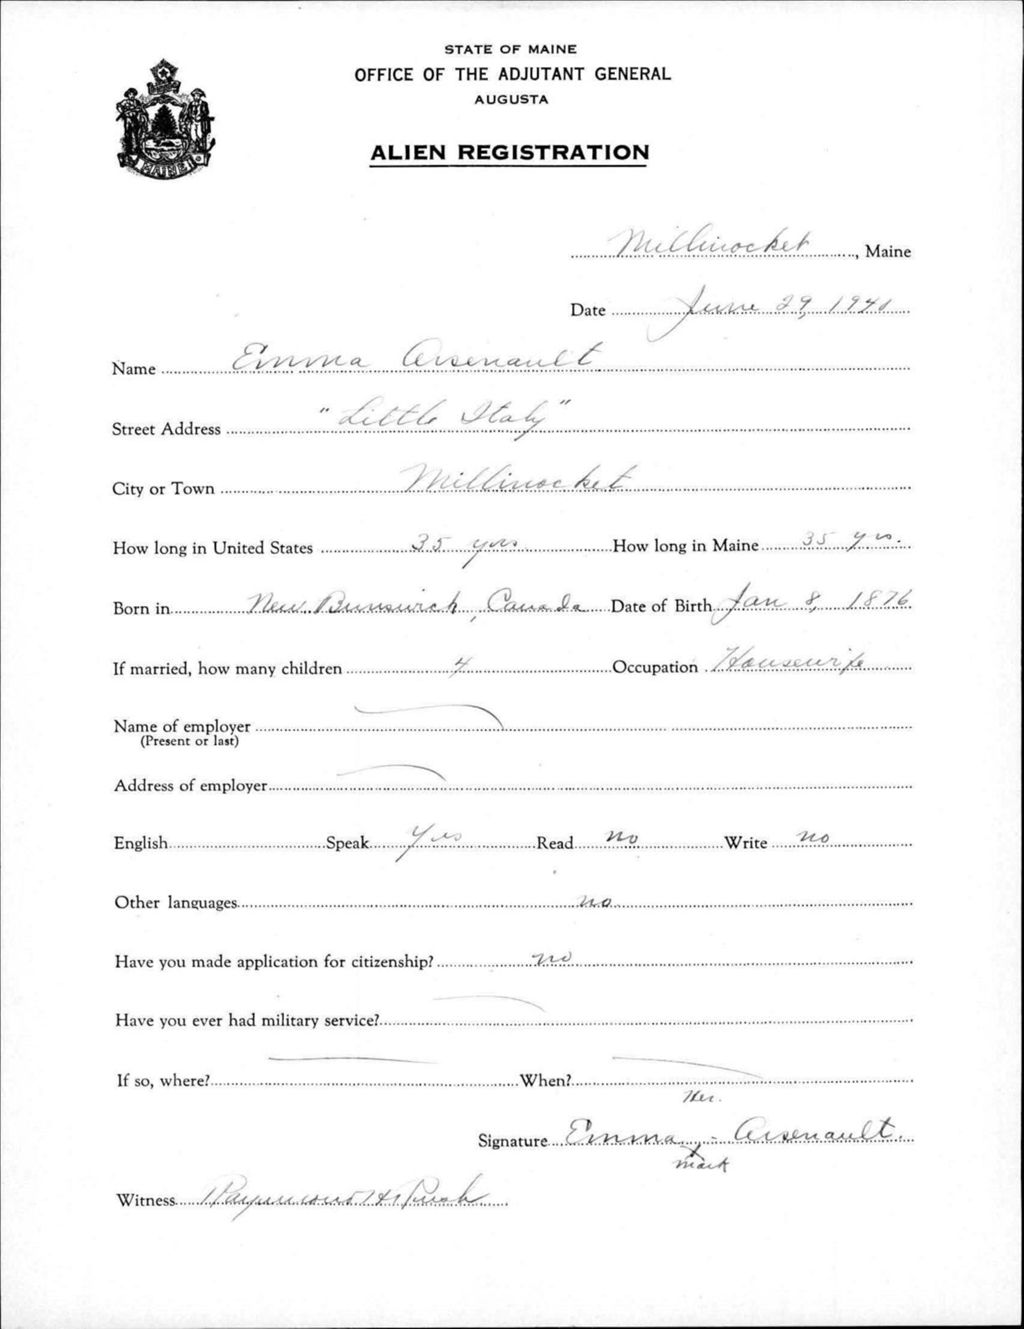 STATE OF MAINE
OFFICE OF THE ADJUTANT GENERAL
AUGUSTA
ALIEN REGISTRATION
MAINE
Millinocket, Maine
Date June 29, 1940
Name Emma Arsenault
Street Address "Little Italy"
City or Town Millinocket
How long in United States 35 yrs How long in Maine 35 yrs.
Born in New Bunswick, Canada Date of Birth Jan 8, 1876
If married, how many children 4 Occupation Housewife
Name of employer
(Present or last)
Address of employer
English Speak Yes Read no Write no
Other languages no
Have you made application for citizenship? no
Have you ever had military service?
If so, where? When?
Her.
Signature Emma X Arsenault.
mark
Witness Raymond H